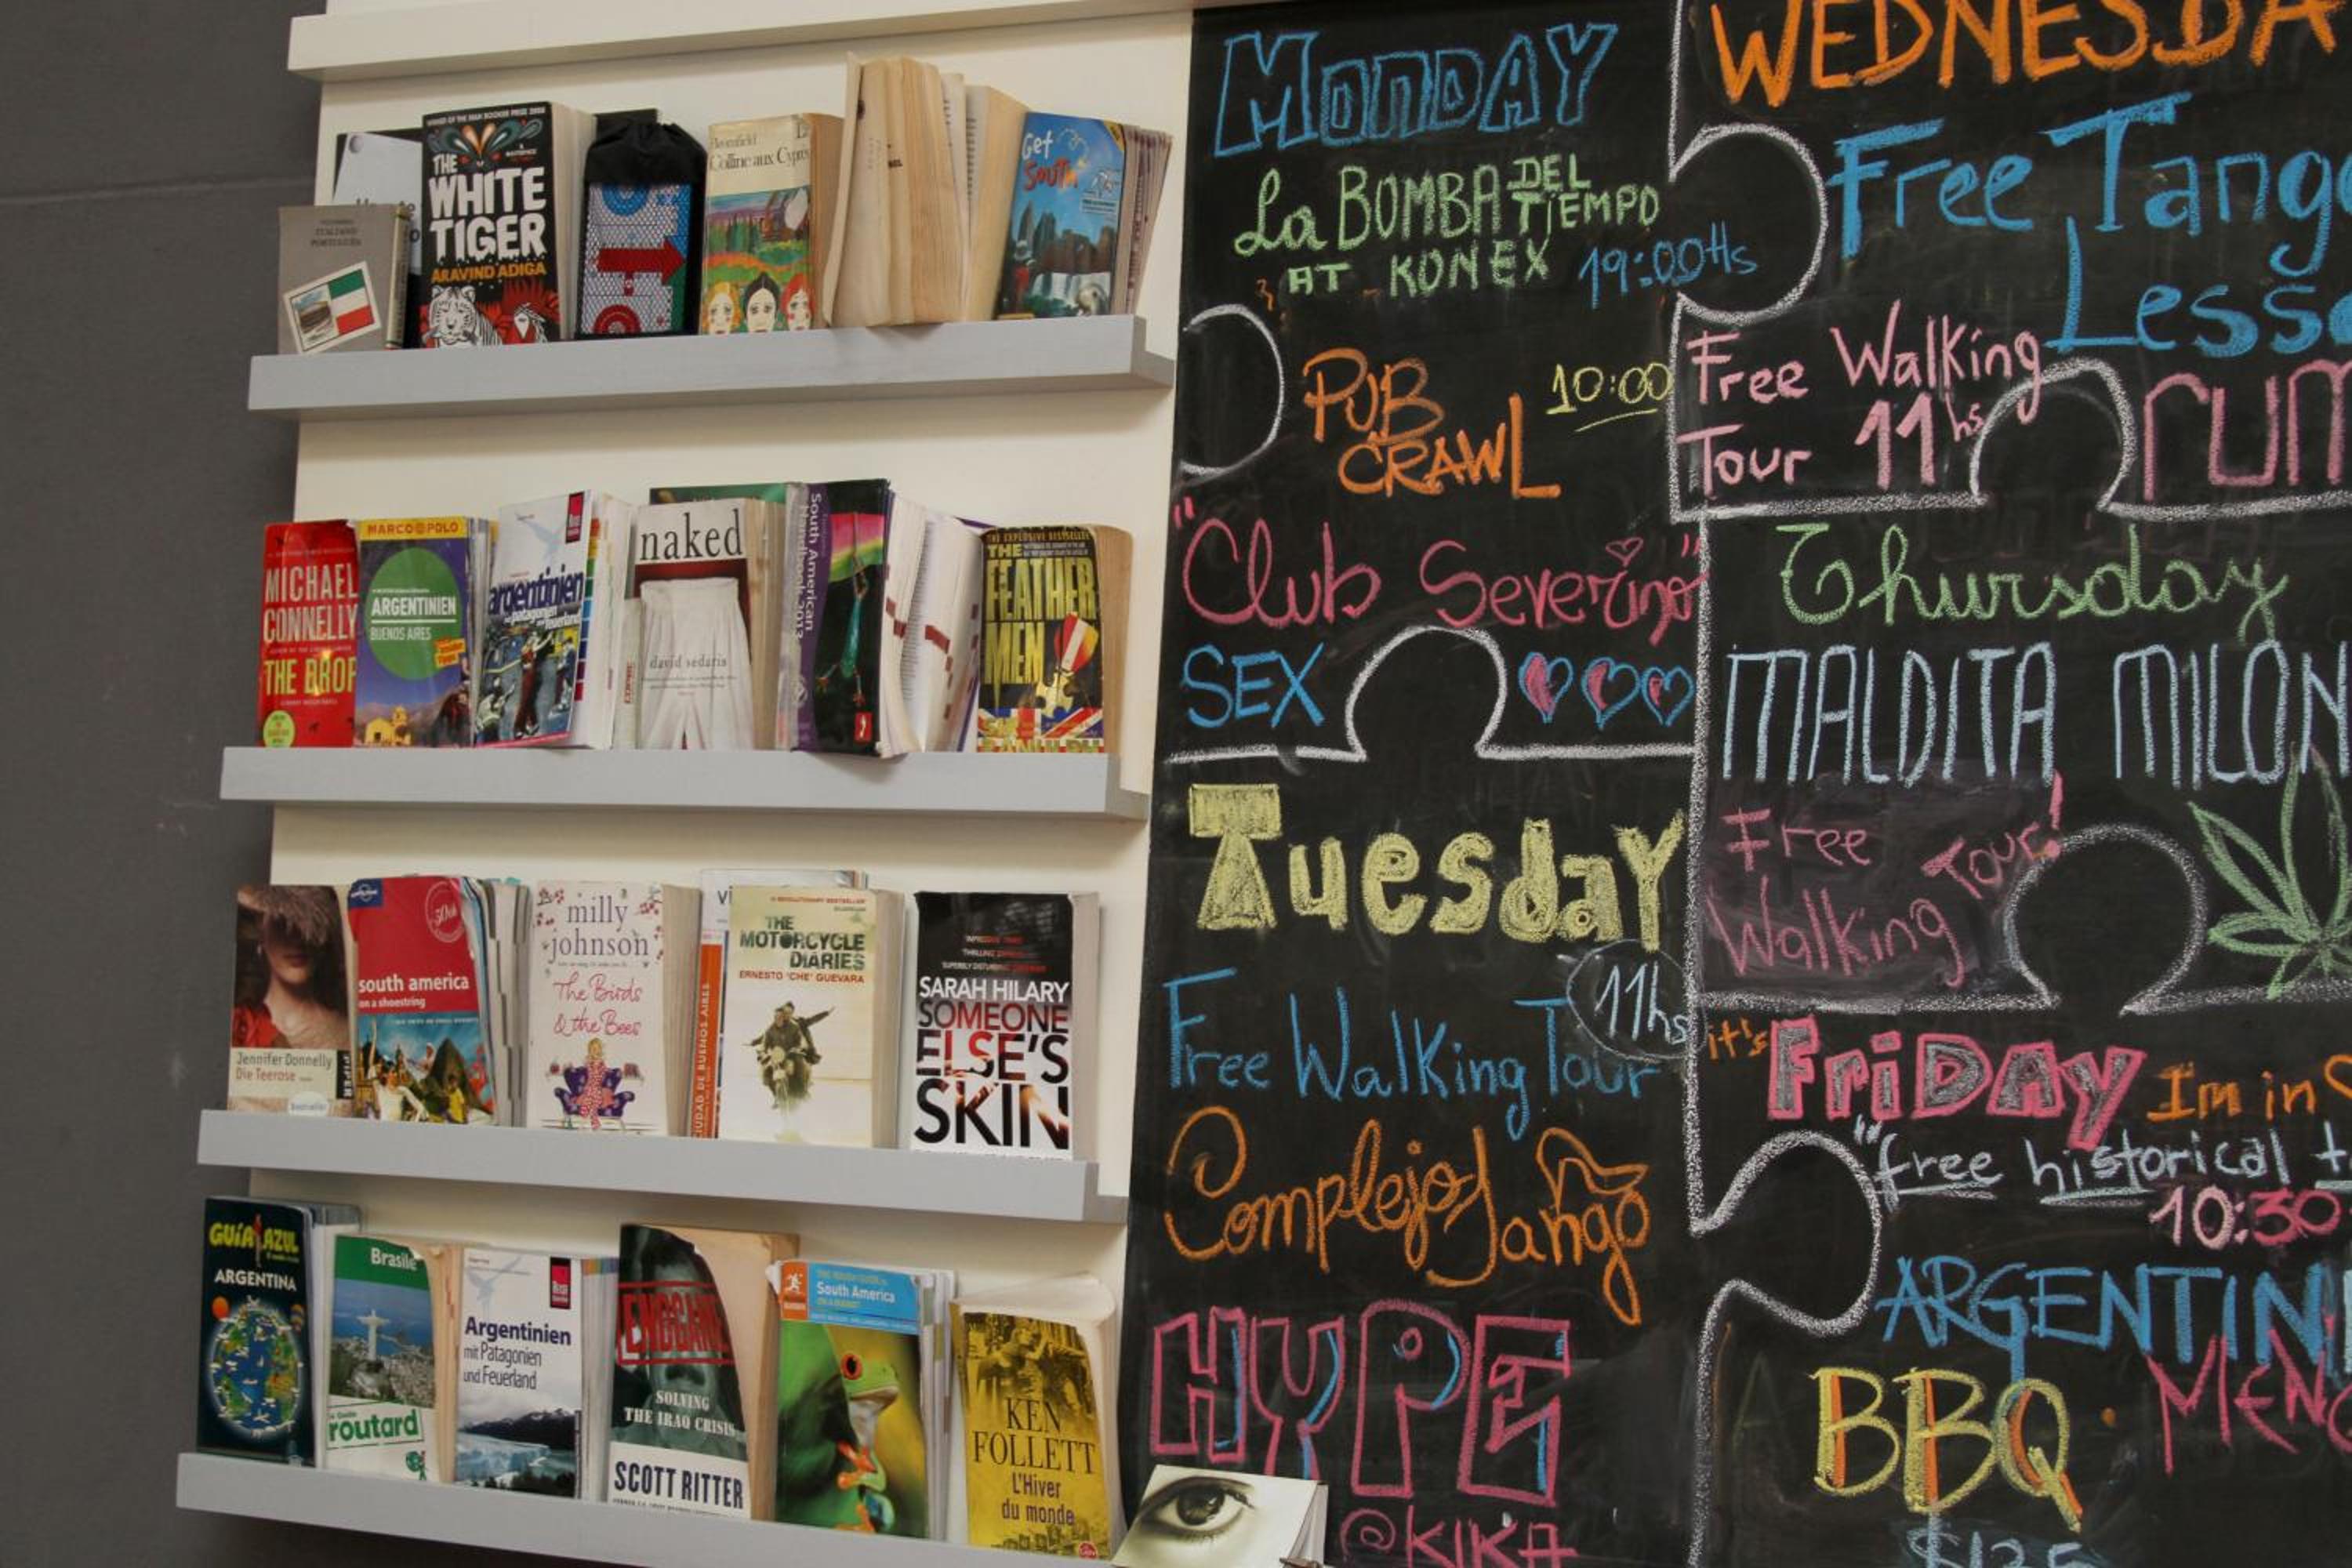 WINNER OF THE MAN BOOKER PRIZE 2008
THE
WHITE
TIGER
ARAVIND ADIGA
ITALIANO
Bromfield
Colline aux Cyprès
Get
South
MICHAEL
CONNELLY
THE DROP
MARCO POLO
ARGENTINIEN
BUENOS AIRES
argentinien
mit patagonien
und feuerland
naked
david sedaris
South American
Handbook 2013
THE EXPLOSIVE BESTSELLER
THE
FEATHER
MEN
Jennifer Donnelly
Die Teerose
PIPER
south america
on a shoestring
milly
johnson
The Birds
& the Bees
CIUDAD DE BUENOS AIRES
THE
MOTORCYCLE
DIARIES
ERNESTO 'CHE' GUEVARA
SARAH HILARY
SOMEONE
ELSE'S
SKIN
GUÍA AZUL
ARGENTINA
Brasile
routard
Argentinien
mit Patagonien
und Feuerland
ENDGAME
SOLVING
THE IRAQ CRISIS
SCOTT RITTER
THE ROUGH GUIDE to
South America
ON A BUDGET
KEN
FOLLETT
L'Hiver
du monde
MONDAY
La BOMBA DEL TiEMPO
AT KONEX 19:00Hs
PUB
CRAWL
10:00
"Club Severino"
SEX
Tuesday
11hs
Free Walking Tour
Complejo Tango
HYPE
@KIKA
WEDNESDA
Free Tang
Less
Free Walking
Tour 11hs
CUM
Thursday
MALDITA MILON
Free
Walking Tour!
it's FRiDAY Im in
"free historical t
10:30
ARGENTIN
BBQ
MEN
$125